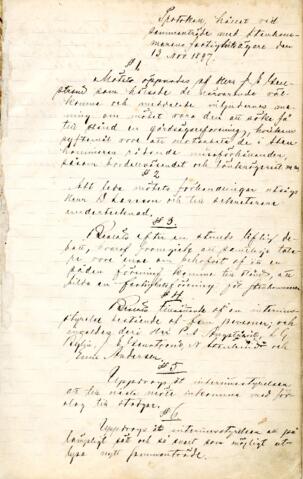 Protokoll, hållet vid
sammanträde med Stenhom-
marens fastighetsägare den
12 Nov 1897.
§ 1.
Mötets öppnades af Herr J. A.
som hälsade de närvarande väl-
komne och meddelade inbjudarnes me-
ning om mötet vara den att söka få
till stånd en gårdsägareförening, hvilkens
syftemål vore att motarbeta de i Sten
hommaren rådande missförhållanden,
såsom bordellväsendet och
§ 2
Att leda mötets förhandlingar utsågs
Herr D Larsson och till sekreterare
undertecknad.
§ 3.
Beslöts efter en stunds liflig de-
batt, hvaraf framgick att samtliga tala-
re vore ense om behofvet af en
sådan förening komme till stånd, att
bilda en fastighetsförening på
§ 4
Beslöts tillsättande af en interims
styrelse bestående af fem personer, och
deri Hrr P.
J. G. N. och
Emil Andersson.
§ 5
Uppdrogs åt interimsstyrelsen
att till nästa möte inkomma med för-
slag till stadgar.
§ 6
Uppdrogs åt interimsstyrelsen att på
lämpligt sätt och så snart som möjligt ut-
lysa nytt sammanträde.